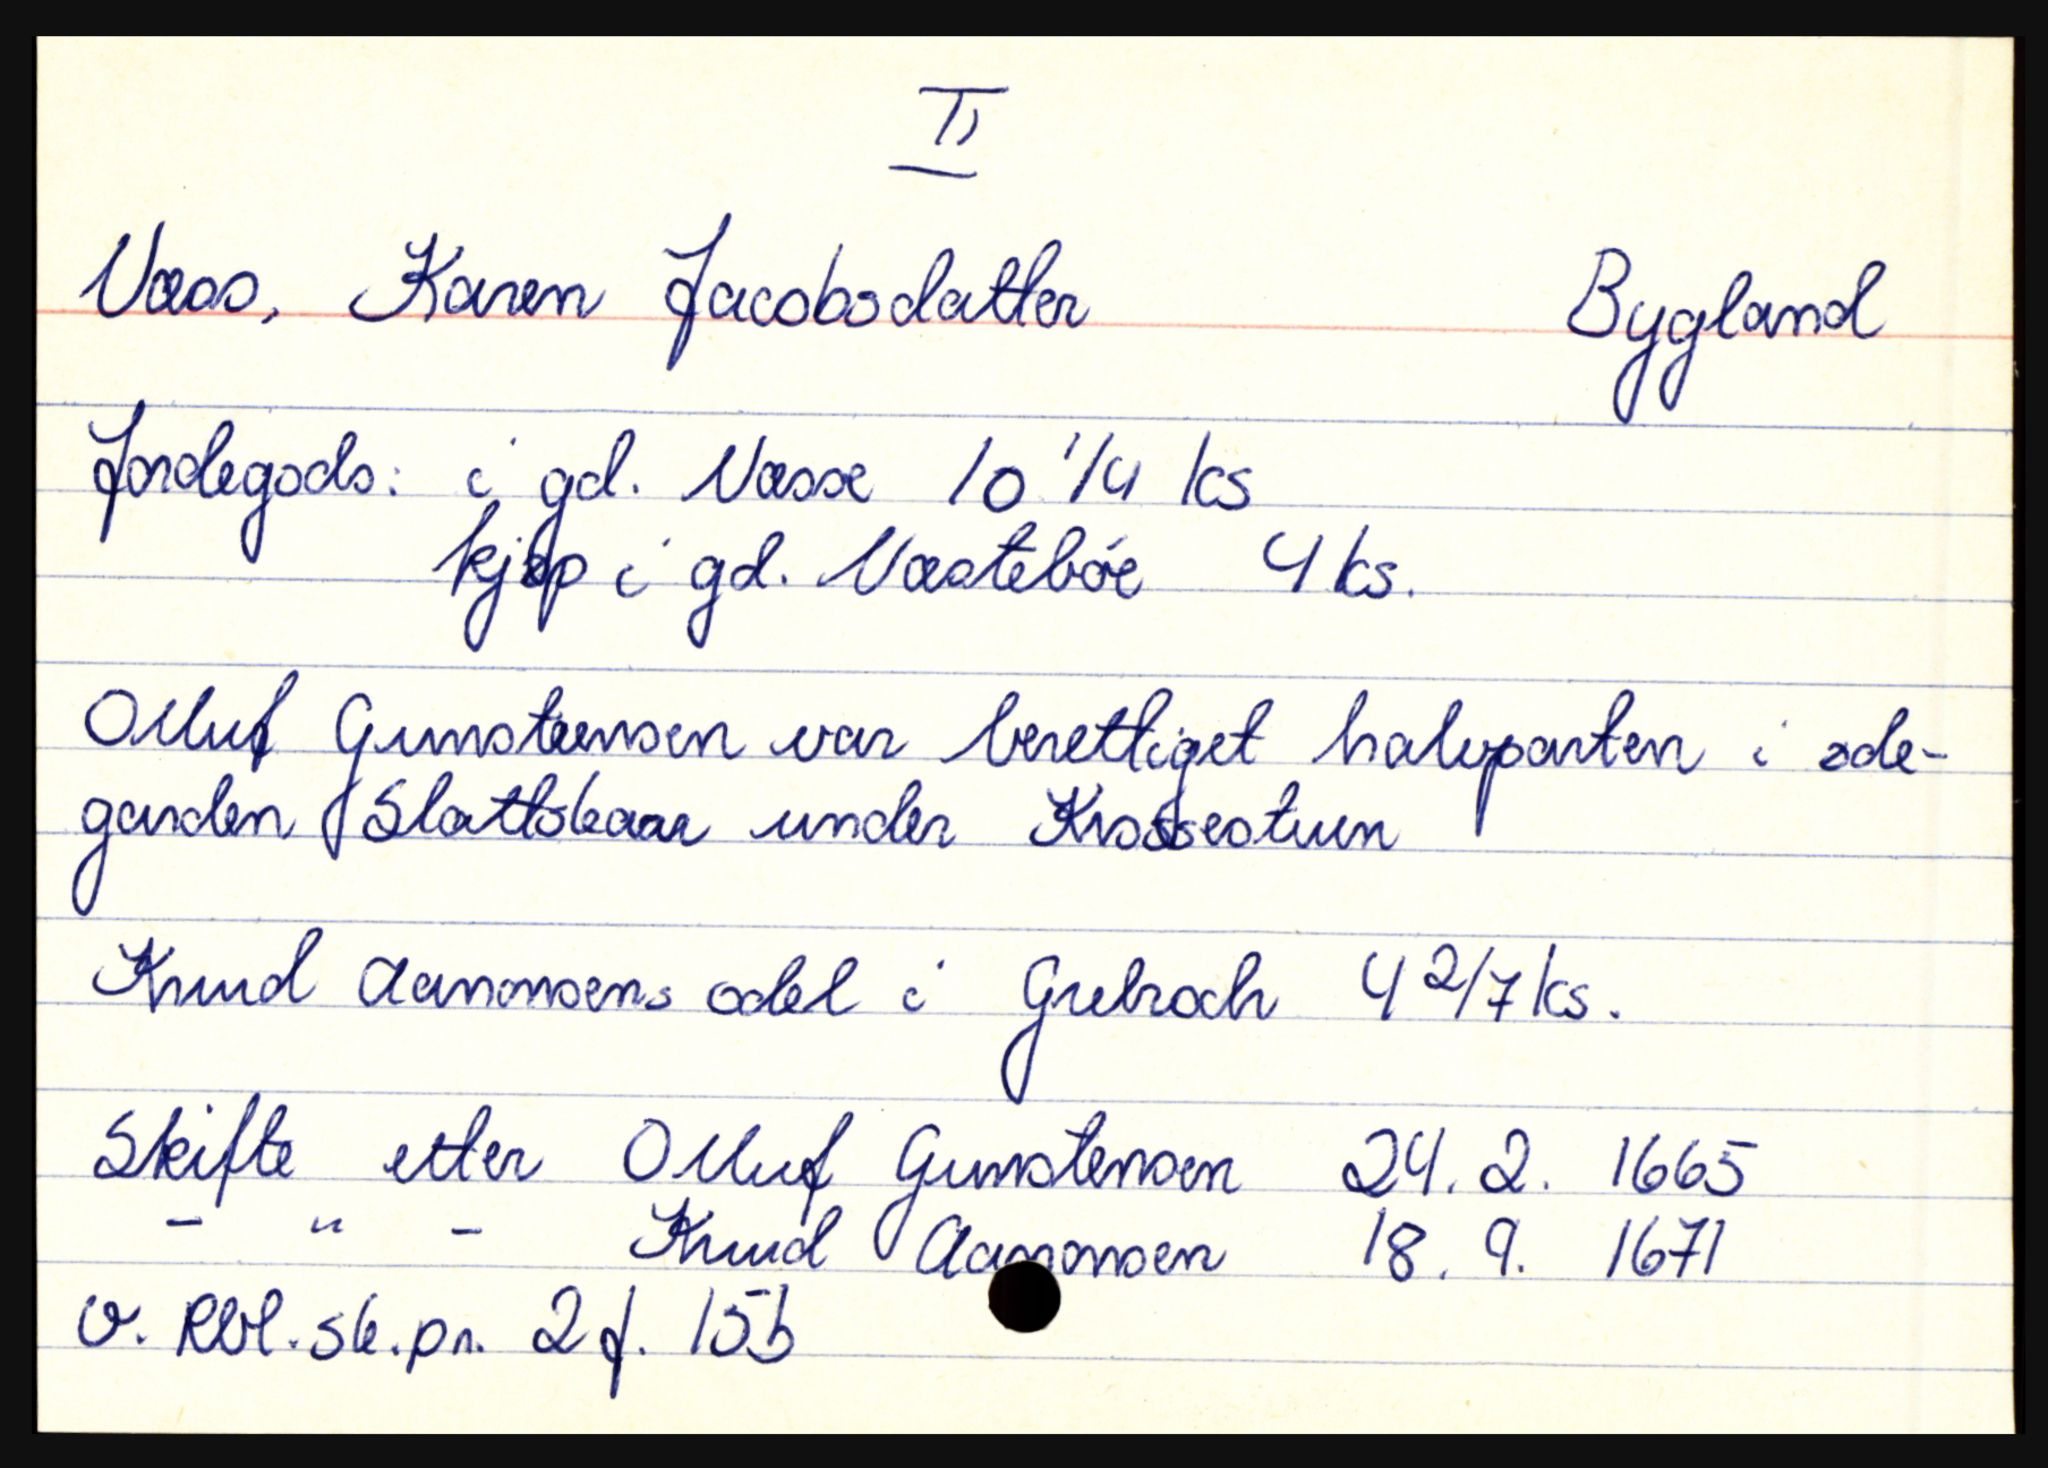 II
Væss, Karen Jacobsdatter Bygland
Jordegods: i gd. Næsse 10 1/4 ks
kjøp i gd. Næstebøe 4 ks.
Olluf Gunsteensen var berettiget halvparten i øde-
garden Slattskaar under Krossestuen
Knud Aanonsens odel i Grebroch 4 2/7 ks.
Skifte etter Olluf Gunstensen 24. 2. 1665
- " - Knud Aanonsen 18. 9. 1671
v. Rbl. sk. pr. 2 f. 15b